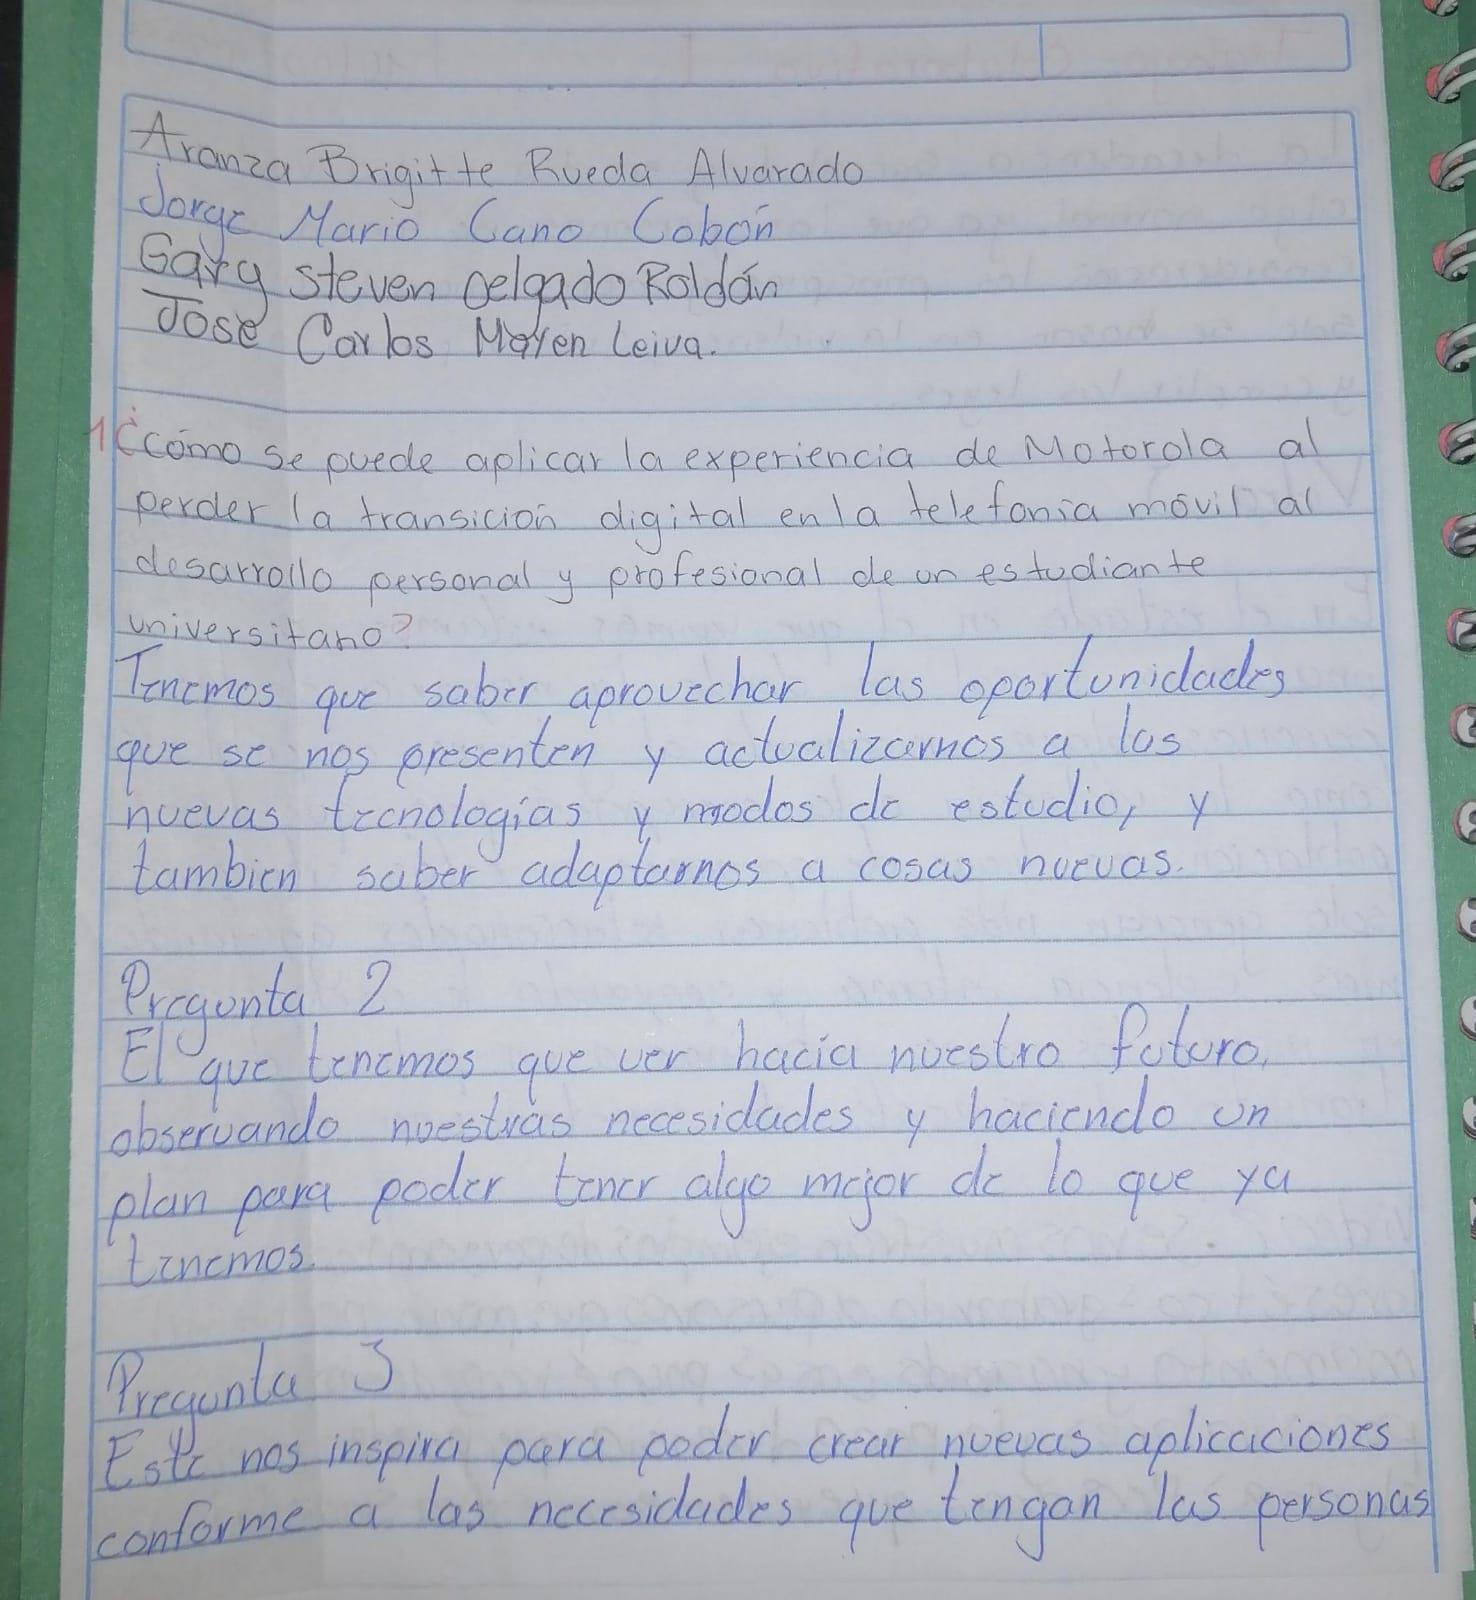 Aranza Brigitte Rueda Alvarado
Jorge Mario Cano Cobón
Gary Steven Delgado Roldán
Jose Carlos Leiva.
1 ¿como se puede aplicar la experiencia de Motorola al
perder la transición digital en la telefonía móvil al
desarrollo personal y profesional de un estudiante
universitario?
Tenemos que saber aprovechar las oportunidades
que se nos presenten y actualizarnos a las
nuevas tecnologías y modos de estudio, y
tambien saber adaptarnos a cosas nuevas.
Pregunta 2
El que tenemos que ver hacia nuestro futuro,
observando nuestras necesidades y haciendo un
plan para poder tener algo mejor de lo que ya
tenemos.
Pregunta 3
Este nos inspira para poder crear nuevas aplicaciones
conforme a las necesidades que tengan las personas